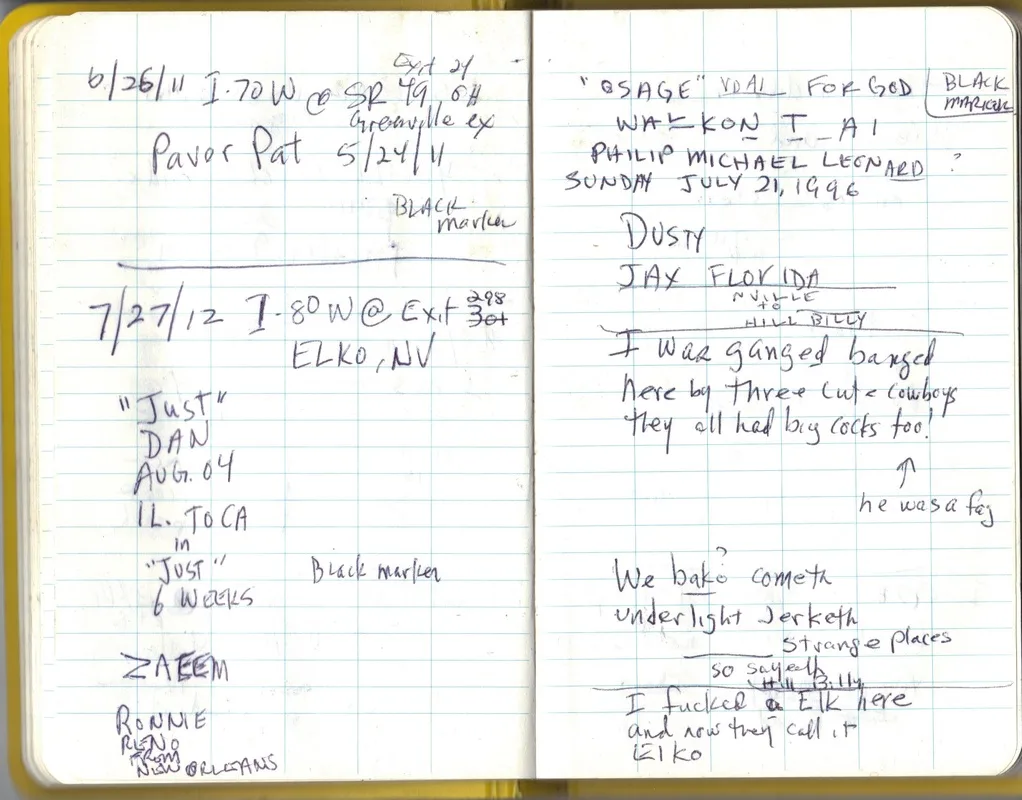 6/26/11 I-70 W @ SR 49, OH
Exit 24
Greenville ex
Pavor Pat 5/24/11
BLACK
marker
7/27/12 I-80 W @ Exit 298
301
ELKO, NV
"Just"
DAN
AUG. 04
IL. TO CA
in
"JUST" Black marker
6 WEEKS
ZAEEM
RONNIE
RENO
FROM
NEW ORLEANS
"OSAGE" FOR GOD BLACK
MARKER
WALKON I AI
PHILIP MICHAEL LEONARD ?
SUNDAY JULY 21, 1996
DUSTY
JAX FLORIDA
NVILLE
to
HILL BILLY
I was ganged banged
here by three cute cowboys
they all had big cocks too!
↑
he was a fag
?
We bako cometh
underlight Jerketh
strange places
so sayeth
Hill Billy
I fucked a Elk here
and now they call it
Elko